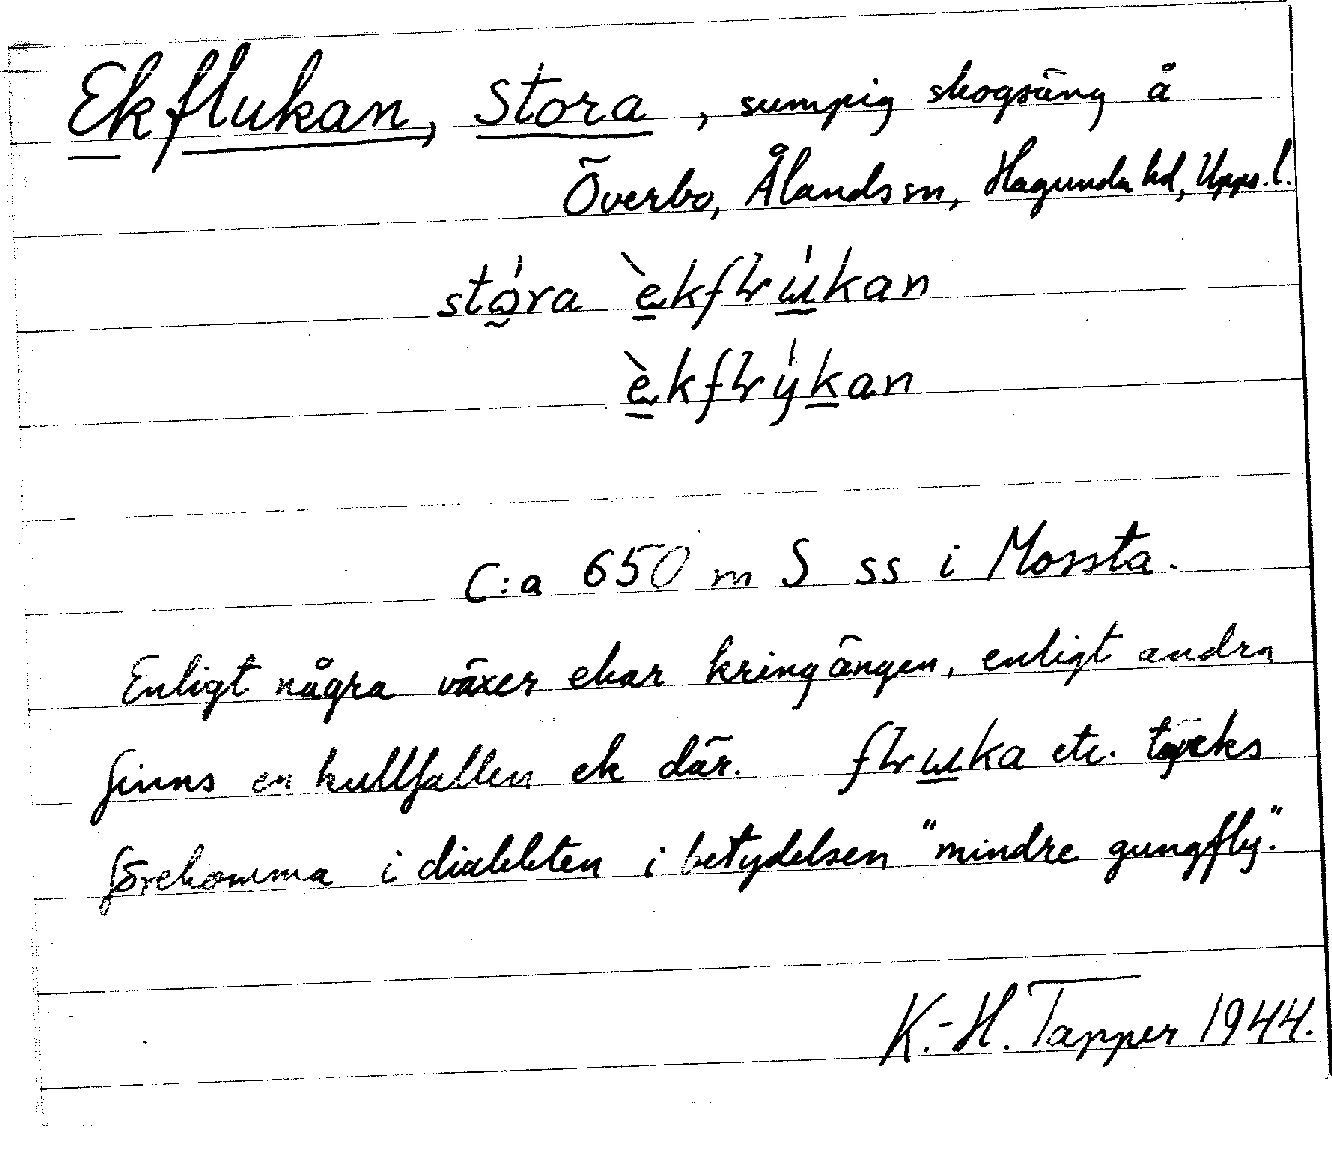 Ekflukan, Stora, sumpig skogsäng å
Överbo, Ålands sn, Hagunda hd, Upps. l.
stora èkflúkan
èkflýkan
C:a 650 m S ss i Mossta.
Enligt några växer ekar kring ängen, enligt andra
finns en kullfallen ek där. fluka etc. tycks
förekomma i dialekten i betydelsen "mindre gungfly".
K.-H. Tapper 1944.